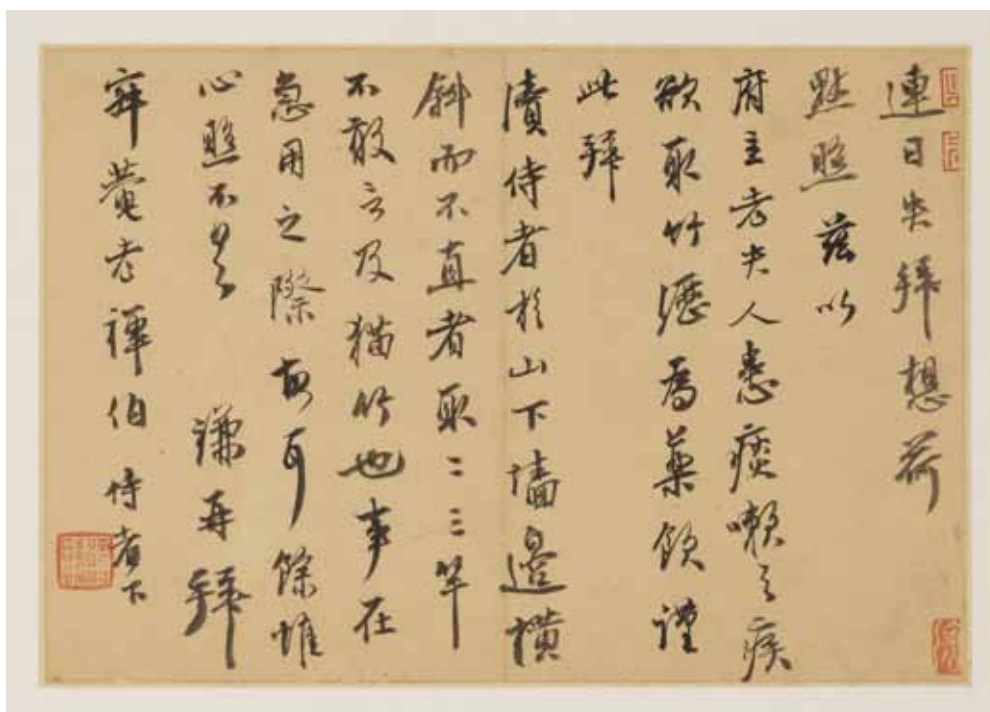 連日失拜想荷
點照茲以
府主老夫人患痰嗽之疾
欲取竹瀝為藥飲謹
此拜
瀆侍者於山下墻邊橫
斜而不直者取二三竿
不敢言及猫竹也事在
急用之際毋可餘惟
心照不具 謙再拜
宰菴老禪伯 侍者下